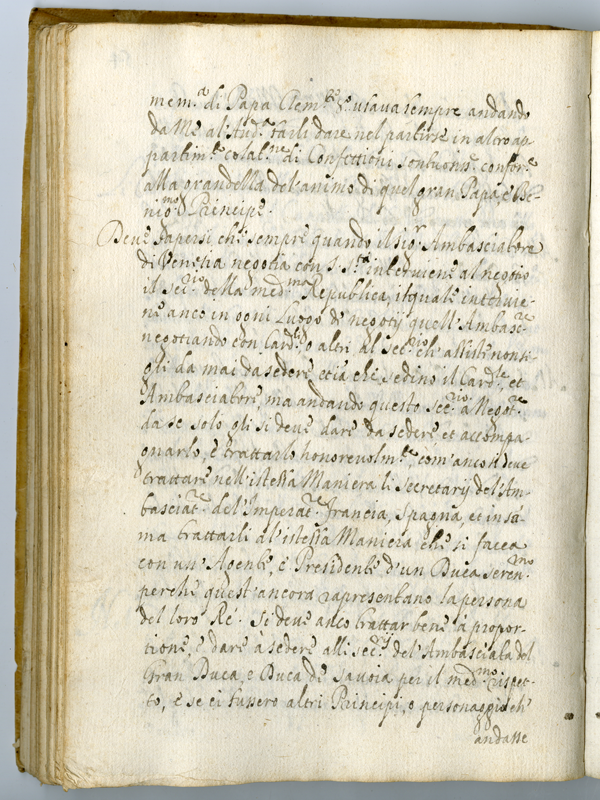 mem.ª di Papa Clem.te 8.º usava sempre andando
da Me al stud.º farli dare nel partirse in al
partim.to colat.ne di Confettioni sontuoriss. confor.e
alla grandezza del'animo di quel gran Papa, e Be-
nig.mo Principe.
Deve sapersi che sempre quando il sig.r Ambasciatore
di Venetia negotia con S. S.tà interviene al negotio
il sec.rio della med.ma Republica, il quale intervie-
ne anco in ogni luogo di negotij quell'Ambasc.re
negotiando con Card.li o altri al sec.rio ch'assiste non si
gli da mai da sedere etia che sedino il Card.le et
Ambasciatore, ma andando questo Sec.rio à Negot.re
da se solo gli si deve dare da sedere et accompa-
gnarlo, e trattarlo honorevolm.te, com'anco si deve
trattare nell'istessa Maniera li Secretarij del'Am-
basciat.re del'Imperat.re Francia, Spagna, et in sū-
ma trattarli al'istessa Maniera che si faccia
con un'Agente, e Presidente d'un Duca Seren.mo
perche quest'ancora rapresentano la persona
del loro Ré. Si deve anco trattar bene à propor-
tione, e dare à sedere alli sec.rij del'Ambasciata del
Gran Duca, e Duca di Savoia per il med.mo rispet-
to, e se ci fussero altri Principi, o personaggi ch'
andasse